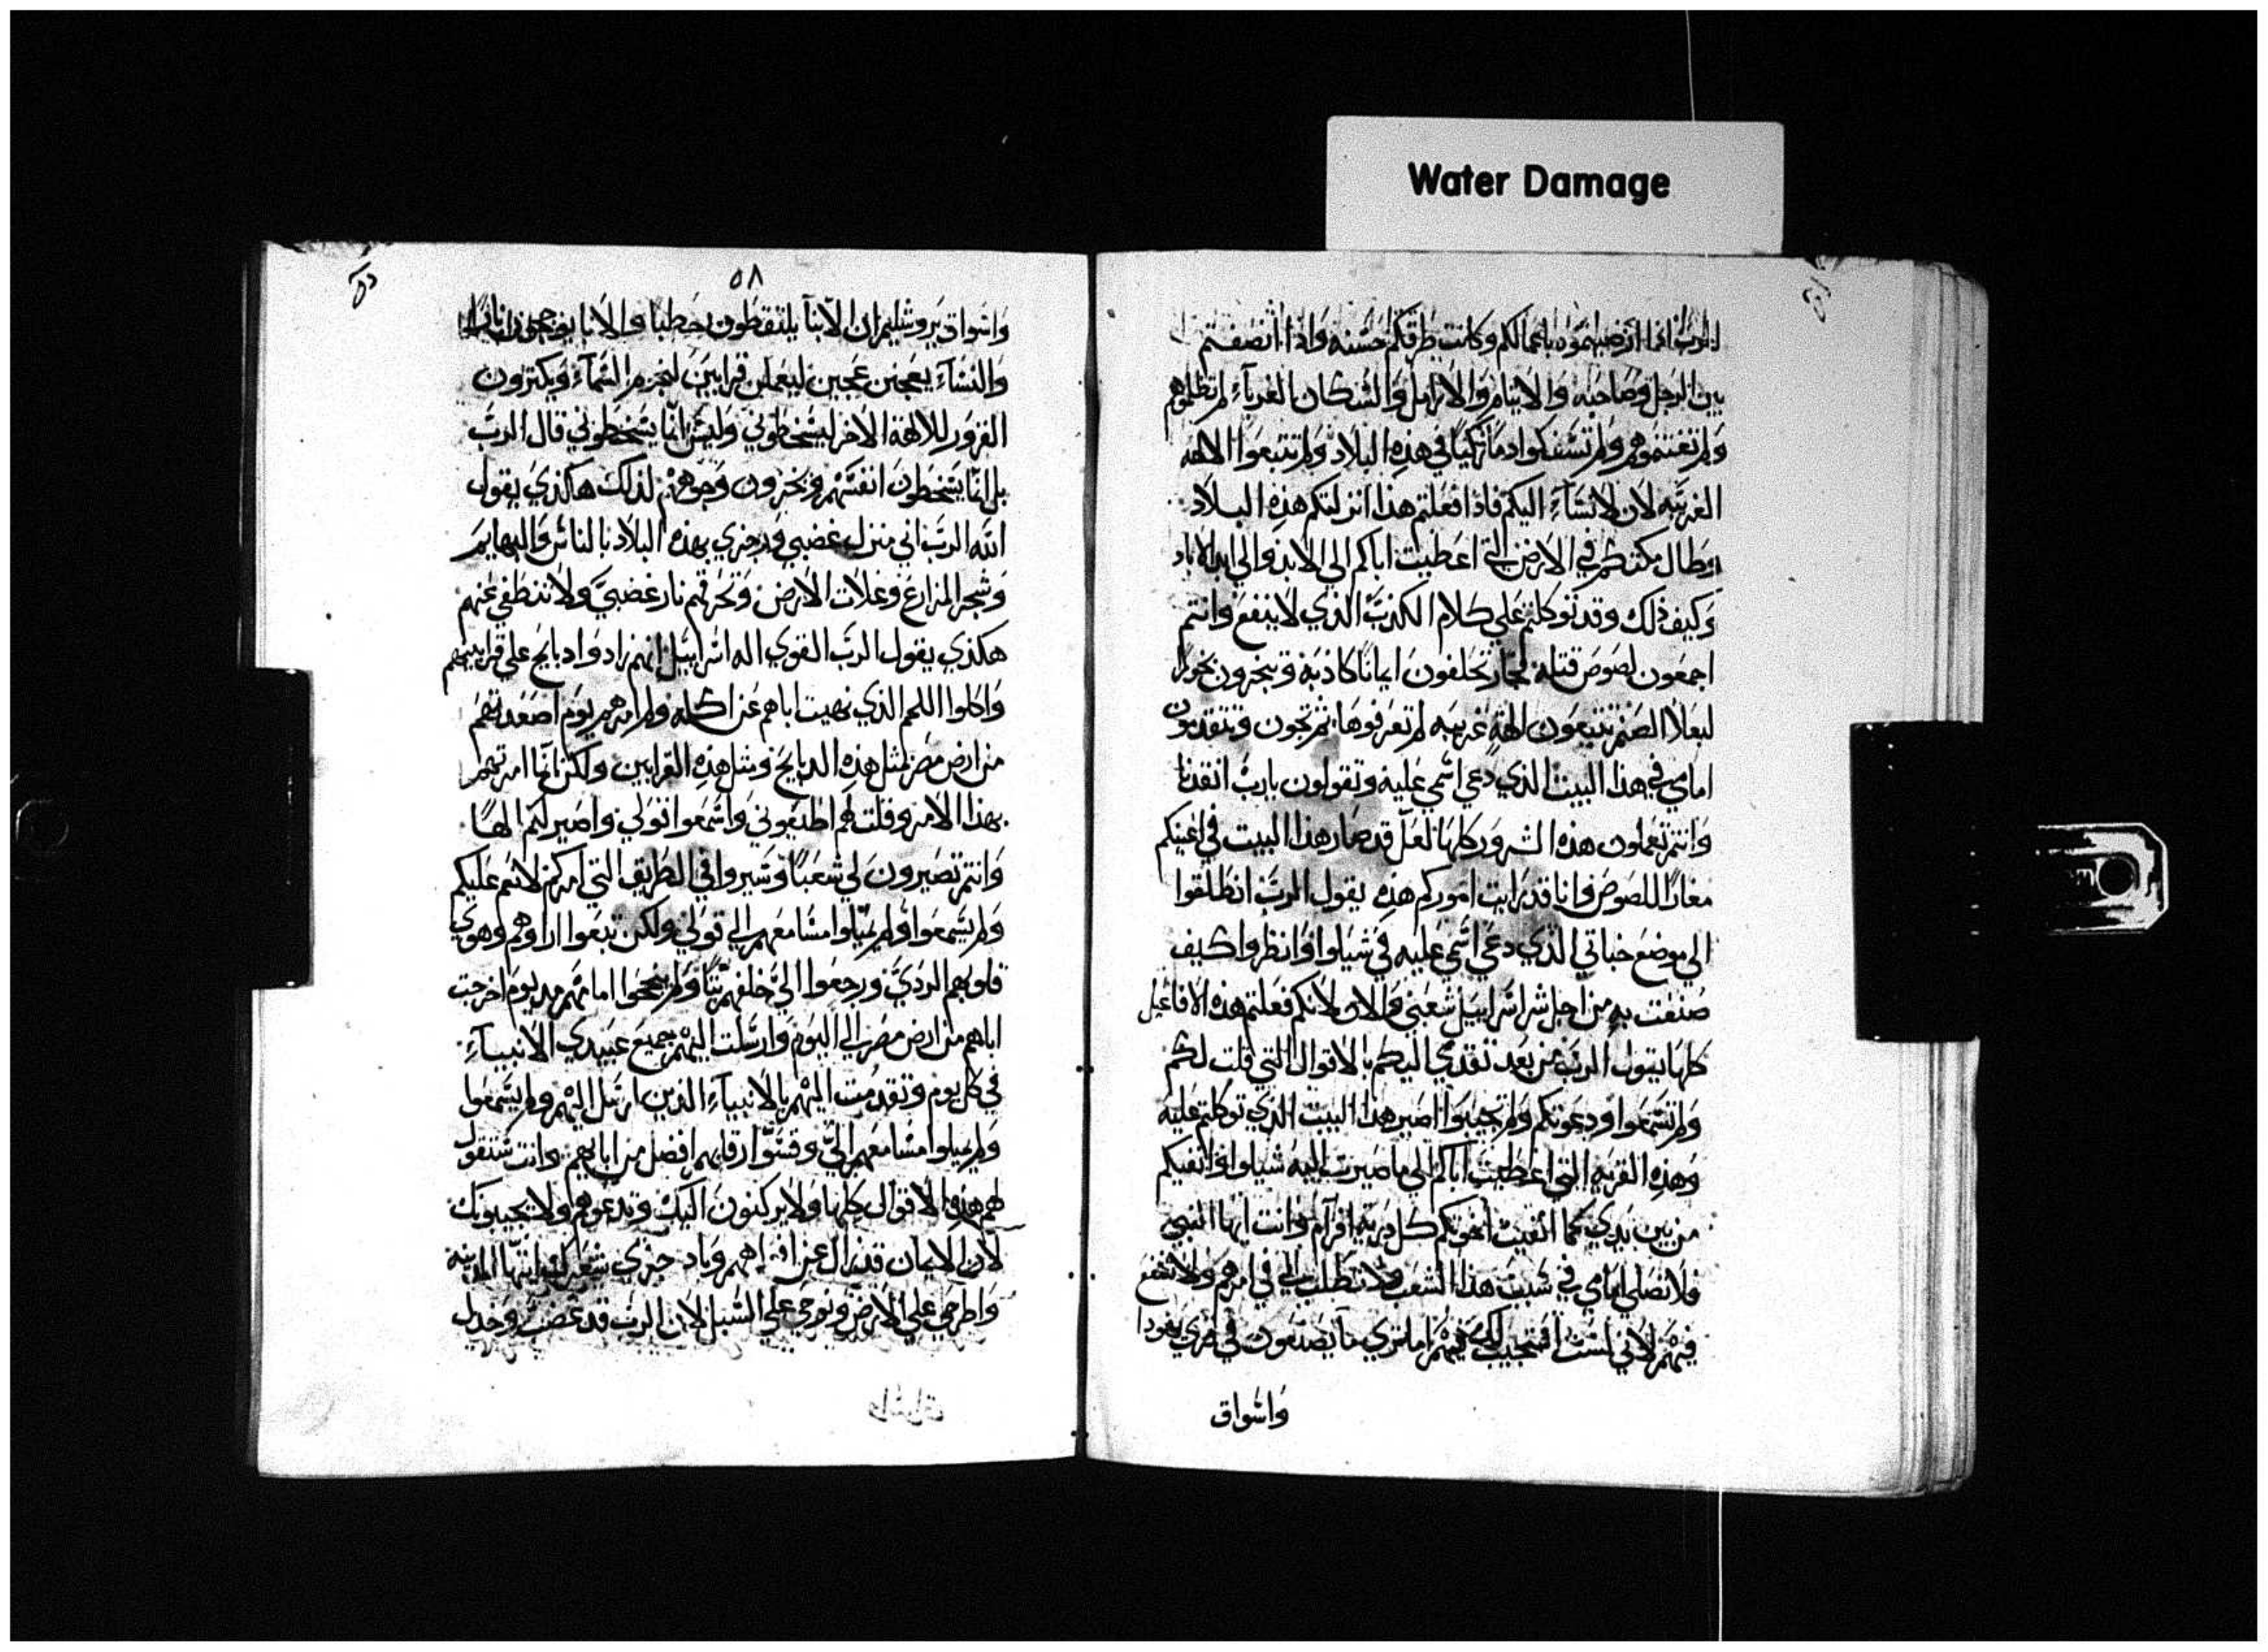 Water Damage
الرب انما ارضيتموه باعمالكم وكانت طرقكم حسنه واذا انصفتم
بين الرجل وصاحبه والايتام والارامل والسكان الغرباء لم تظلموهم
ولم تغتموهم ولم تسفكوا دما زكيا في هذه البلاد ولم تتبعوا الالهه
الغريبه لان لانساء اليكم فاذا فعلتم هذا انزلتكم هذه البلاد
وطال مكثكم في الارض التي اعطيت اباكم الي الابد والي ابد الاباد
وكيف ذلك وقد توكلتم علي كلام الكذب الذي لا ينفع وانتم
اجمعون لصوص قتله فجار تحلفون ايمانا كاذبه وتبخرون بخورا
لبعلا الصنم تتبعون الهة غريبه لم تعرفوها ثم تجون وتتقدمون
امامي في هذا البيت الذي دعي اسمي عليه وتقولون يارب انقدنا
وانتم تعملون هذه الشرور كلها لعل قد صار هذا البيت في اعينكم
مغارا للصوص وانا قد رايت اموركم هذه يقول الرب انطلقوا
الي موضع خباتي الذي دعي اسمي عليه في شيلوا وانظروا كيف
صنعت به من اجل شر اسراييل شعبي والان لانكم فعلتم هذه الافاعيل
كلها يقول الرب من بعد تقدمي اليكم بالاقوال التي قلت لكم
ولم تسمعوا ودعوتكم ولم تجيبوا اصير هذا البيت الذي توكلتم عليه
وهذه القريه التي اعطيت اباكم الي ما صيرت اليه شيلوا وانفيكم
من بين يدي كما انفيت اخوتكم كل ذرية افرام وانت ايها النبي
فلا تصلي امامي في سبب هذا الشعب ولا تطلب الي في امرهم ولا تشفع
فيهم لاني لست استجيب لك فيهم اما تري ما يصنعون في قري يهودا
واسواق
٥٨
واسواق يروشليم ان الابنا يلتقطون حطبا والابا يوججون نارا
والنساء يعجنن عجين ليعملن قرابين لنجوم السماء ويكثرون
القرور للالهة الاخر ليسخطوني وليس انا يسخطوني قال الرب
بل انما يسخطون انفسهم وتخزون وجوههم لذلك هاكذي يقول
الله الرب اني منزل غضبي ورجزي بهذه البلاد بالناس والبهايم
وشجر المزارع وغلات الارض وتحرقهم نار غضبي ولا تنطفي عنهم
هكذي يقول الرب القوي اله اسراييل انهم زادوا دبايح علي قرابينهم
واكلوا اللحم الذي نهيت اباهم عن اكله ولم امرهم يوم اصعدتهم
من ارض مصر بمثل هذه الدبايح ومثل هذه القرابين ولكن انما امرتهم
بهذا الامر وقلت لهم اطيعوني واسمعوا قولي واصير لكم الها
وانتم تصيرون لي شعبا وسيروا في الطريق التي امركم لانعم عليكم
ولم يسمعوا ولم يميلوا مسامعهم الي قولي ولكن تبعوا اراوهم وهوي
قلوبهم الردي ورجعوا الي خلفهم ولم ينجحوا امامهم من يوم اخرجت
اباهم من ارض مصر الي اليوم وارسلت اليهم جميع عبيدي الانبياء
في كل يوم وتقدمت اليهم بالانبياء الذين ارسل اليهم ولم يسمعوا
ولم يميلوا مسامعهم الي وقسوا رقابهم افضل من ابايهم وانت ستقول
لهم هذه الاقوال كلها ولا يركنون اليك وتدعوهم ولا يجيبونك
لان الايمان قد زال عن افواههم وباد جزي شعرك ايتها المدينه
واطرحي علي الارض ونوحي علي السبل لان الرب قد غضب وخدل